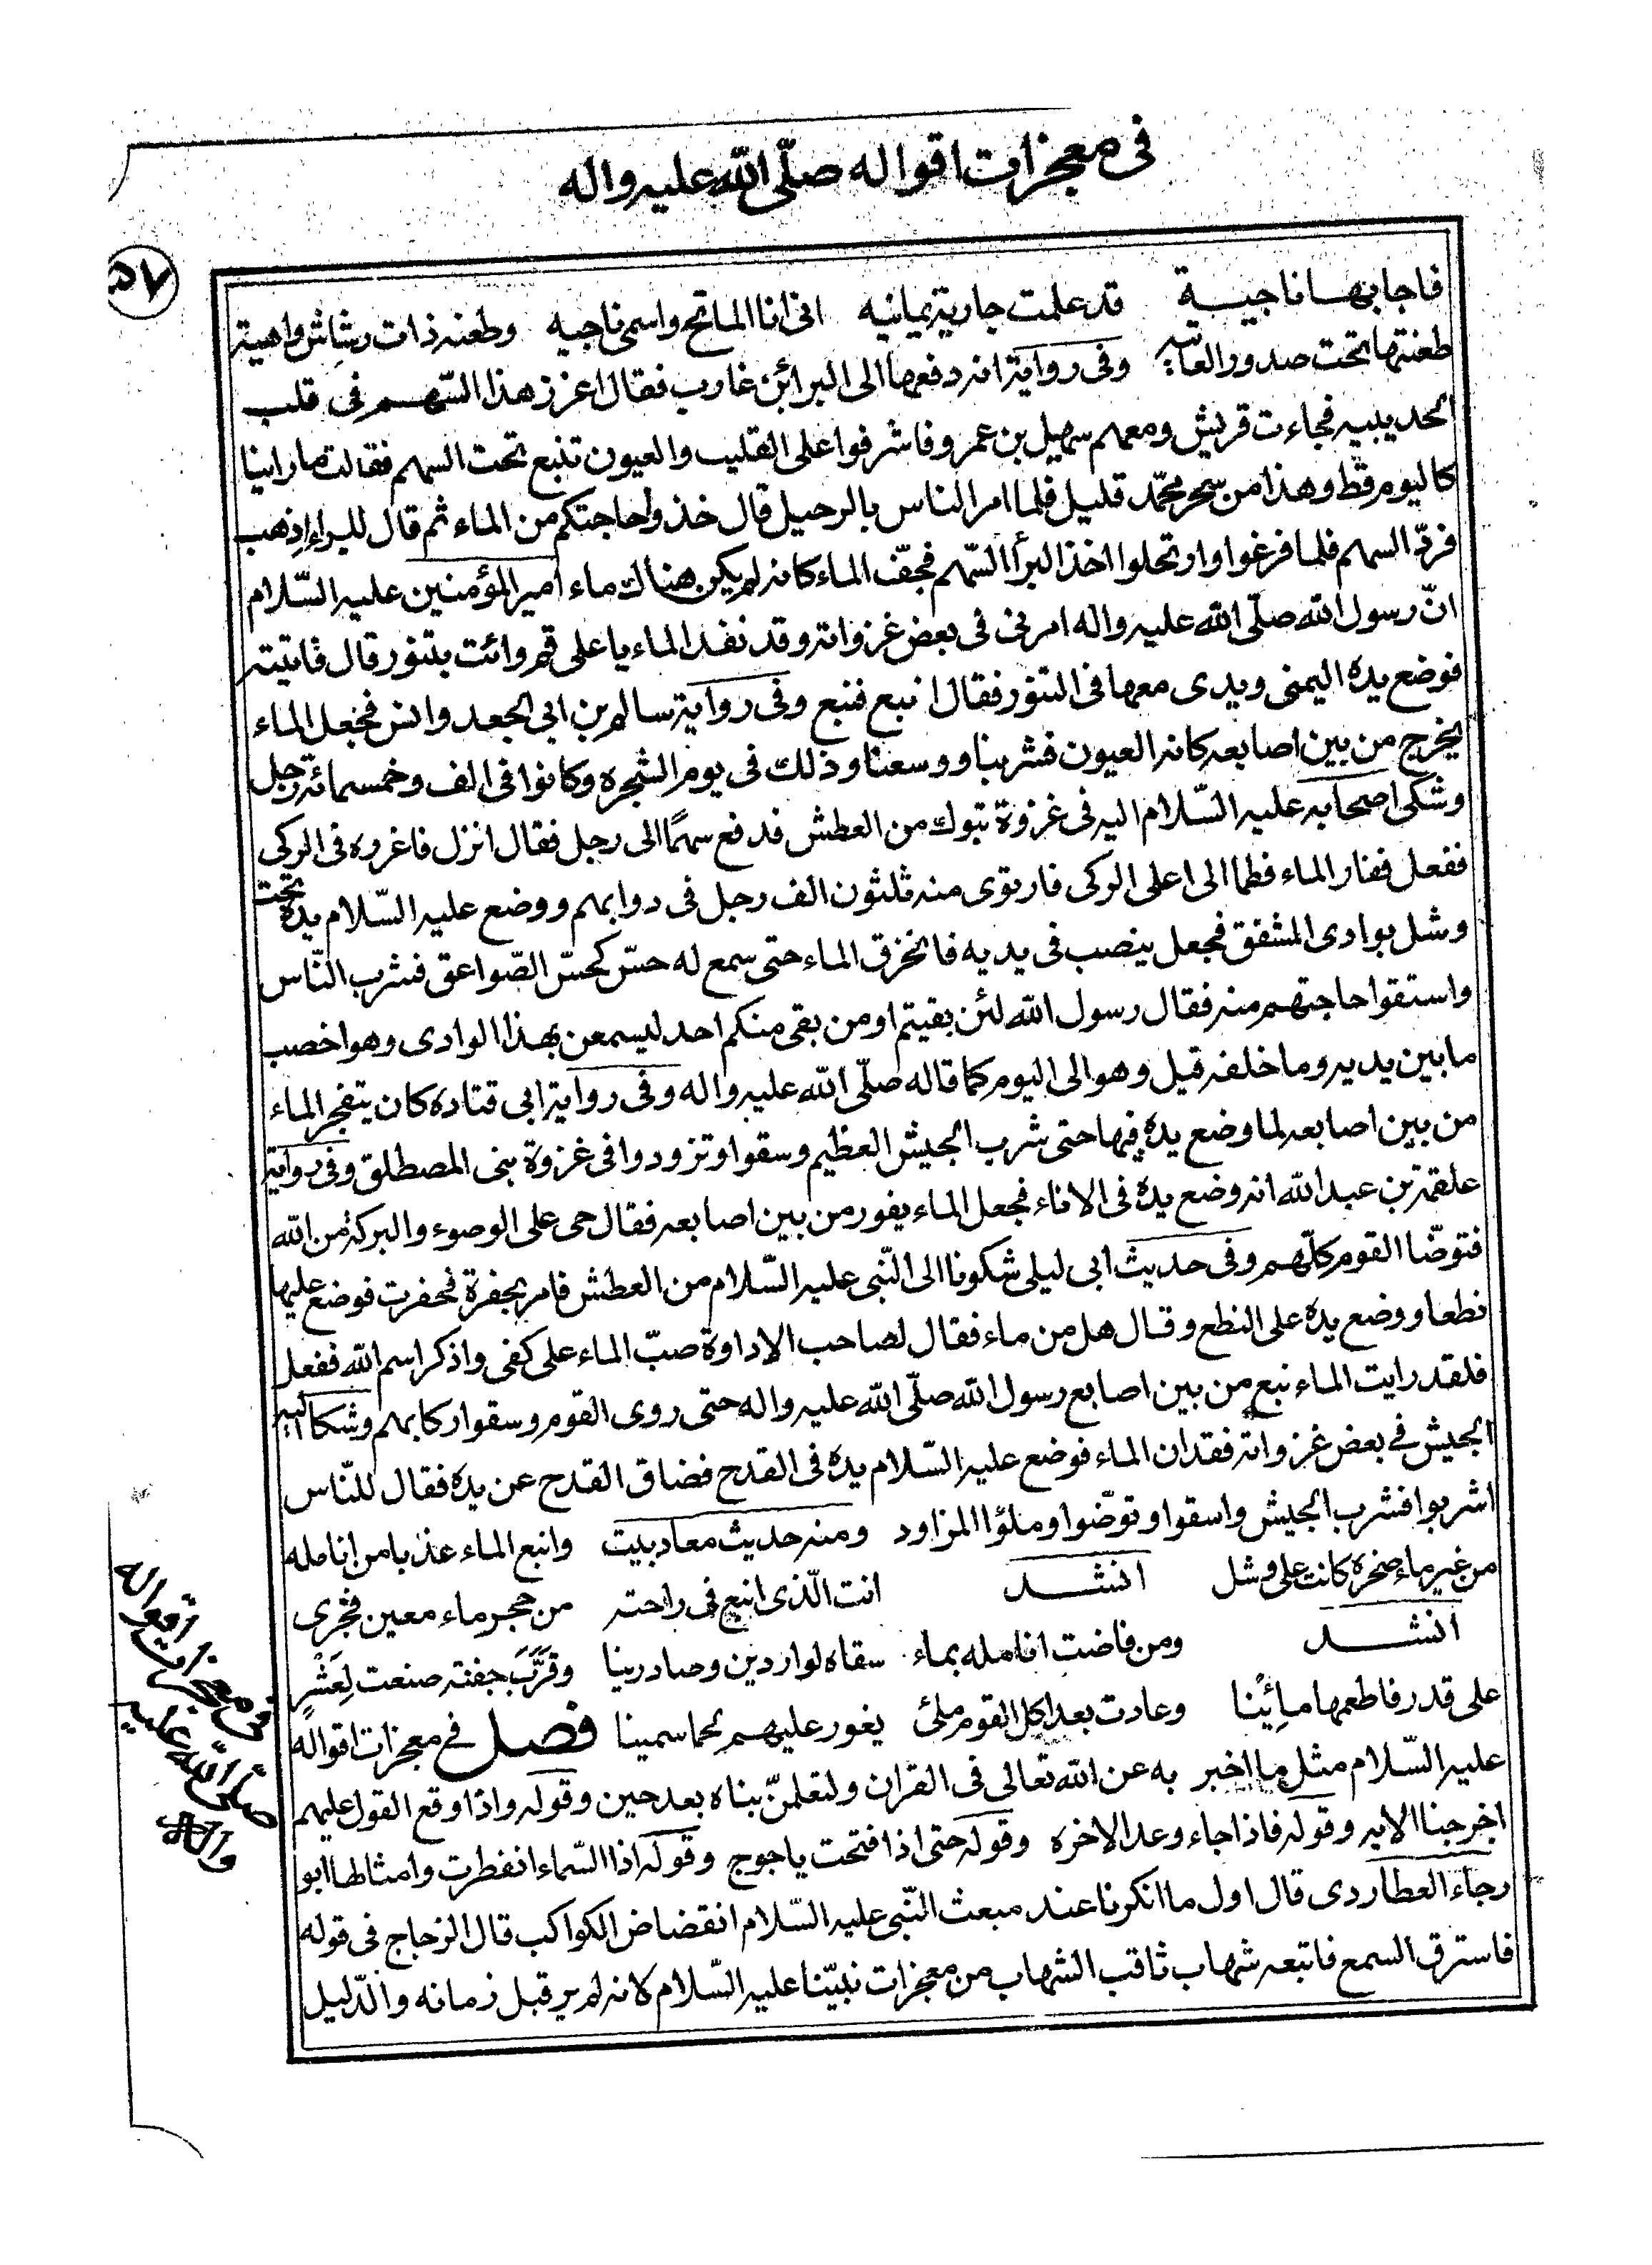 فى معجزات اقواله صلّى الله عليه واله
٥٧
فاجابها ناجيـة قد علمت جارية يمانيه انى انا الماتح واسمى ناجيه وطعنه ذات رشاش واهية
طعنتها تحت صدور العاتيه وفى رواية انه دفعها الى البراء بن غارب فقال اغرز هذا السّهـم فى قلب
الحديبيه فجاءت قريش ومعهم سهيل بن عمرو فاشرفوا على القليب والعيون تنبع تحت السهم فقالت ما راينا
كاليوم قطّ وهذا من سحر محمّد قليل فلما امر الناس بالرحيل قال خذوا حاجتكم من الماء ثم قال للبراء اذهب
فردّ السهم فلما فرغوا وارتحلوا اخذ البراء السّهم فجفّ الماء كانه لم يكن هناك ماء امير المؤمنين عليه السّلام
انّ رسول الله صلّى الله عليه واله امرنى فى بعض غزواته وقد نفد الماء يا على قم وائت بتنور قال فاتيته
فوضع يده اليمنى ويدى معها فى التنور فقال انبع فنبع وفى رواية سالم بن ابى الجعد وانس فجعل الماء
يخرج من بين اصابعه كانه العيون فشربنا ووسعنا وذلك فى يوم الشجره وكانوا فى الف وخمسمائة رجل
وشكى اصحابه عليه السّلام اليه فى غزوة تبوك من العطش فدفع سهمًا الى رجل فقال انزل فاغرزه فى الركى
ففعل ففار الماء فطما الى اعلى الركى فارتوى منه ثلثون الف رجل فى دوابهم ووضع عليه السّلام يده تحت
وشل بوادى المشفق فجعل ينصب فى يديه فانخرق الماء حتى سمع له حسّ كحسّ الصّواعق فشرب النّاس
واستقوا حاجتهم منه فقال رسول الله لئن بقيتم او من بقى منكم احد ليسمعن بهذا الوادى وهو اخصب
ما بين يديه وما خلفه قيل وهو الى اليوم كما قاله صلّى الله عليه واله وفى رواية ابى قتاده كان يتفجر الماء
من بين اصابعه لما وضع يده فيها حتى شرب الجيش العظيم وسقوا وتزودوا فى غزوة بنى المصطلق وفى رواية
علقمة بن عبد الله انه وضع يده فى الاناء فجعل الماء يفور من بين اصابعه فقال حى على الوضوء والبركة من الله
فتوضّا القوم كلّهـم وفى حديث ابى ليلى شكونا الى النّبى عليه السّلام من العطش فامر بحفرة فحفرت فوضع عليها
نطعا ووضع يده على النطع وقال هل من ماء فقال لصاحب الاداوة صبّ الماء على كفى واذكر اسم الله ففعل
فلقد رايت الماء نبع من بين اصابع رسول الله صلّى الله عليه واله حتى روى القوم وسقوا ركابهم وشكا اليه
الجيش فى بعض غزواته فقدان الماء فوضع عليه السّلام يده فى القدح فضاق القدح عن يده فقال للنّاس
اشربوا فشرب الجيش واسقوا وتوضّوا وملؤا المزاود ومنه حديث معاد بيت وانبع الماء عذبا من انامله
من غير ماء صخرة كانت على وشل انشــد انت الّذى انبع فى راحته من حجر ماء معين فجرى
انشــد ومن فاضت انامله بماء سقاه لواردين وصادرينا وقرّب جفنة صنعت لعشر
على قدر فاطعمها مائِينا وعادت بعد اكل القوم ملئ يفور عليهم لحما سمينا فصـل فى معجزات اقواله
عليه السّلام مثل ما اخبر به عن الله تعالى فى القران ولتعلمنّ نباه بعد حين وقوله واذا وقع القول عليهم
اخرجنا الايه وقوله فاذا جاء وعد الاخره وقوله حتى اذا فتحت ياجوج وقوله اذا السّماء انفطرت وامثالها ابو
رجاء العطاردى قال اول ما انكرنا عند مبعث النّبى عليه السّلام انقضاض الكواكب قال الزجاج فى قوله
فاسترق السمع فاتبعه شهاب ثاقب الشهاب من معجزات نبيّنا عليه السّلام لانه لم ير قبل زمانه والدّليل
فى معجزات اقواله
صلّى الله عليه
واله